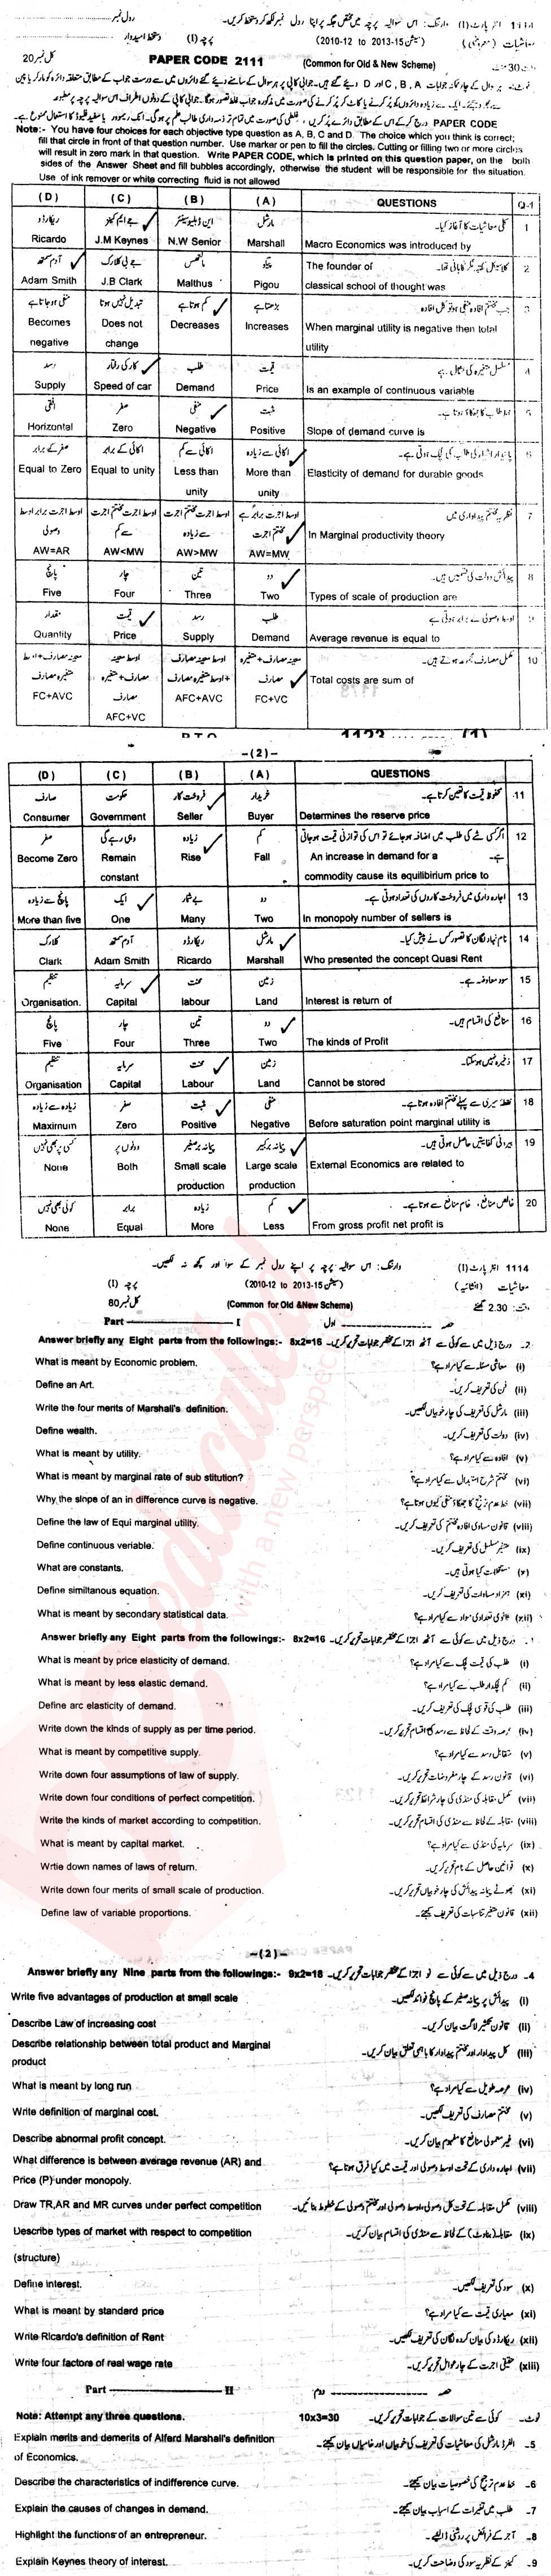 رول نمبر ۔۔۔۔ وارننگ: اس سوالیہ پرچہ میں مختص جگہ پر اپنا رول نمبر لکھ کر دستخط کریں۔ (I) انٹر پارٹ 1114
دستخط امیدوار ۔۔۔۔ پرچہ (I) (سیشن 15-2013 to 12-2010) معاشیات (معروضی)
کل نمبر 20 PAPER CODE 2111 (Common for Old & New Scheme) وقت 30 منٹ
Note:- You have four choices for each objective type question as A, B, C and D. The choice which you think is correct;
fill that circle in front of that question number. Use marker or pen to fill the circles. Cutting or filling two or more circles
will result in zero mark in that question. Write PAPER CODE, which is printed on this question paper, on the both
sides of the Answer Sheet and fill bubbles accordingly, otherwise the student will be responsible for the situation.
Use of ink remover or white correcting fluid is not allowed
(D) (C) (B) (A) QUESTIONS Q-1
ریکارڈو جے ایم کینز این ڈبلیو سینئر مارشل کلی معاشیات کا آغاز کیا۔ 1
Ricardo J.M Keynes N.W Senior Marshall Macro Economics was introduced by
آدم سمتھ جے بی کلارک مالتھس پیگو کلاسیکل مکتبہ فکر کا بانی تھا۔ 2
Adam Smith J.B Clark Malthus Pigou The founder of classical school of thought was
منفی ہو جاتا ہے تبدیل نہیں ہوتا کم ہوتا ہے بڑھتا ہے جب مختتم افادہ منفی ہو تو کل افادہ 3
Becomes negative Does not change Decreases Increases When marginal utility is negative then total utility
رسد کار کی رفتار طلب قیمت مسلسل متغیرہ کی مثال ہے 4
Supply Speed of car Demand Price Is an example of continuous variable
افقی صفر منفی مثبت خط طلب کا جھکاؤ ہوتا ہے۔ 5
Horizontal Zero Negative Positive Slope of demand curve is
صفر کے برابر اکائی کے برابر اکائی سے کم اکائی سے زیادہ پائیدار اشیاء کی طلب کی لچک ہوتی ہے۔ 6
Equal to Zero Equal to unity Less than unity More than unity Elasticity of demand for durable goods
نظریہ مختتم پیداواری میں 7
AW=AR AW<MW AW>MW AW=MW In Marginal productivity theory
پانچ چار تین دو پیدائش دولت کی قسمیں ہیں۔ 8
Five Four Three Two Types of scale of production are
مقدار قیمت رسد طلب اوسط وصولی کے برابر ہوتی ہے 9
Quantity Price Supply Demand Average revenue is equal to
مکمل مصارف مجموعہ ہوتے ہیں۔ 10
FC+AVC AFC+VC AFC+AVC FC+VC Total costs are sum of
P.T.O 1123 (1)
-(2)-
(D) (C) (B) (A) QUESTIONS
صارف حکومت فروخت کار خریدار محفوظ قیمت کا تعین کرتا ہے۔ 11
Consumer Government Seller Buyer Determines the reserve price
صفر وہی رہے گی زیادہ کم اگر کسی شے کی طلب میں اضافہ ہو جائے تو اس کی توازنی قیمت ہو جاتی ہے۔ 12
Become Zero Remain constant Rise Fall An increase in demand for a commodity cause its equilibirium price to
پانچ سے زیادہ ایک بے شمار دو اجارہ داری میں فروخت کاروں کی تعداد ہوتی ہے۔ 13
More than five One Many Two In monopoly number of sellers is
کلارک آدم سمتھ ریکارڈو مارشل نام نہاد لگان کا تصور کس نے پیش کیا۔ 14
Clark Adam Smith Ricardo Marshall Who presented the concept Quasi Rent
تنظیم سرمایہ محنت زمین سود معاوضہ ہے۔ 15
Organisation. Capital labour Land Interest is return of
پانچ چار تین دو منافع کی اقسام ہیں۔ 16
Five Four Three Two The kinds of Profit
تنظیم سرمایہ محنت زمین ذخیرہ نہیں ہو سکتا۔ 17
Organisation Capital Labour Land Cannot be stored
زیادہ سے زیادہ صفر مثبت منفی نقطہ سیری سے پہلے مختتم افادہ ہوتا ہے۔ 18
Maximum Zero Positive Negative Before saturation point marginal utility is
کسی بھی نہیں دونوں پر پیمانہ صغیر پیمانہ برکبیر بیرونی کفایتیں حاصل ہوتی ہیں۔ 19
None Both Small scale production Large scale production External Economics are related to
کوئی بھی نہیں برابر زیادہ کم خالص منافع، خام منافع سے ہوتا ہے۔ 20
None Equal More Less From gross profit net profit is
وارننگ: اس سوالیہ پرچہ پر اپنے رول نمبر کے سوا اور کچھ نہ لکھیں۔ (I) انٹر پارٹ 1114
پرچہ (I) (سیشن 15-2013 to 12-2010) معاشیات (انشائیہ)
کل نمبر 80 (Common for Old &New Scheme) وقت: 2.30 گھنٹے
Part ---------- I حصہ ---------- اول
Answer briefly any Eight parts from the followings:- 8x2=16 درج ذیل میں سے کوئی سے آٹھ اجزا کے مختصر جوابات تحریر کریں۔ 2-
What is meant by Economic problem. معاشی مسئلہ سے کیا مراد ہے؟ (i)
Define an Art. فن کی تعریف کریں۔ (ii)
Write the four merits of Marshall's definition. مارشل کی تعریف کی چار خوبیاں لکھیں۔ (iii)
Define wealth. دولت کی تعریف کریں۔ (iv)
What is meant by utility. افادہ سے کیا مراد ہے؟ (v)
What is meant by marginal rate of sub stitution? مختتم شرح استبدال سے کیا مراد ہے؟ (vi)
Why the slope of an in difference curve is negative. خط عدم ترجیح کا جھکاؤ منفی کیوں ہوتا ہے؟ (vii)
Define the law of Equi marginal utility. قانون مساوی افادہ مختتم کی تعریف کریں۔ (viii)
Define continuous veriable. متغیر مسلسل کی تعریف کریں۔ (ix)
What are constants. مستقلات کیا ہوتی ہیں۔ (x)
Define similtanous equation. ہمزاد مساوات کی تعریف کریں۔ (xi)
What is meant by secondary statistical data. ثانوی تعدادی مواد سے کیا مراد ہے؟ (xii)
Answer briefly any Eight parts from the followings:- 8x2=16 درج ذیل میں سے کوئی سے آٹھ اجزا کے مختصر جوابات تحریر کریں۔
What is meant by price elasticity of demand. طلب کی قیمت لچک سے کیا مراد ہے؟ (i)
What is meant by less elastic demand. کم لچکدار طلب سے کیا مراد ہے؟ (ii)
Define arc elasticity of demand. طلب کی قوسی لچک کی تعریف کریں۔ (iii)
Write down the kinds of supply as per time period. عرصہ وقت کے لحاظ سے رسد کی اقسام تحریر کریں۔ (iv)
What is meant by competitive supply. متقابل رسد سے کیا مراد ہے؟ (v)
Write down four assumptions of law of supply. قانون رسد کے چار مفروضات تحریر کریں۔ (vi)
Write down four conditions of perfect competition. مکمل مقابلہ کی منڈی کی چار شرائط تحریر کریں۔ (vii)
Write the kinds of market according to competition. مقابلہ کے لحاظ سے منڈی کی اقسام تحریر کریں۔ (viii)
What is meant by capital market. سرمایہ کی منڈی سے کیا مراد ہے؟ (ix)
Wrtie down names of laws of return. قوانین حاصل کے نام تحریر کریں۔ (x)
Write down four merits of small scale of production. چھوٹے پیمانہ پیدائش کی چار خوبیاں تحریر کریں۔ (xi)
Define law of variable proportions. قانون متغیر تناسبات کی تعریف کیجئے۔ (xii)
-(2)-
Answer briefly any Nine parts from the followings:- 9x2=18 درج ذیل میں سے کوئی سے نو اجزا کے مختصر جوابات تحریر کریں۔ 4-
Write five advantages of production at small scale پیدائش پر پیمانہ صغیر کے پانچ فوائد لکھیں۔ (i)
Describe Law of increasing cost قانون تکثیر لاگت بیان کریں۔ (ii)
Describe relationship between total product and Marginal product کل پیداوار اور مختتم پیداوار کا باہمی تعلق بیان کریں۔ (iii)
What is meant by long run عرصہ طویل سے کیا مراد ہے؟ (iv)
Write definition of marginal cost. مختتم مصارف کی تعریف لکھیں۔ (v)
Describe abnormal profit concept. غیر معمولی منافع کا مفہوم بیان کریں۔ (vi)
What difference is between average revenue (AR) and Price (P) under monopoly. اجارہ داری کے تحت اوسط وصولی اور قیمت میں کیا فرق ہوتا ہے؟ (vii)
Draw TR,AR and MR curves under perfect competition مکمل مقابلہ کے تحت کل وصولی، اوسط وصولی اور مختتم وصولی کے خطوط بنائیں۔ (viii)
Describe types of market with respect to competition (structure) مقابلہ (بناوٹ) کے لحاظ سے منڈی کی اقسام بیان کریں۔ (ix)
Define interest. سود کی تعریف لکھیں۔ (x)
What is meant by standard price معیاری قیمت سے کیا مراد ہے؟ (xi)
Write Ricardo's definition of Rent ریکارڈو کی بیان کردہ لگان کی تعریف لکھیں۔ (xii)
Write four factors of real wage rate حقیقی اجرت کے چار عوامل تحریر کریں۔ (xiii)
Part ---------- II حصہ ---------- دوم
Note: Attempt any three questions. 10x3=30 کوئی سے تین سوالات کے جوابات تحریر کریں۔ نوٹ۔
Explain merits and demerits of Alferd Marshall's definition of Economics. الفرڈ مارشل کی معاشیات کی تعریف کی خوبیاں اور خامیاں بیان کیجئے۔ 5-
Describe the characteristics of indifference curve. خط عدم ترجیح کی خصوصیات بیان کیجئے۔ 6-
Explain the causes of changes in demand. طلب میں تغیرات کے اسباب بیان کیجئے۔ 7-
Highlight the functions of an entrepreneur. آجر کے فرائض پر روشنی ڈالیے۔ 8-
Explain Keynes theory of interest. کینز کے نظریہ سود کی وضاحت کریں۔ 9-